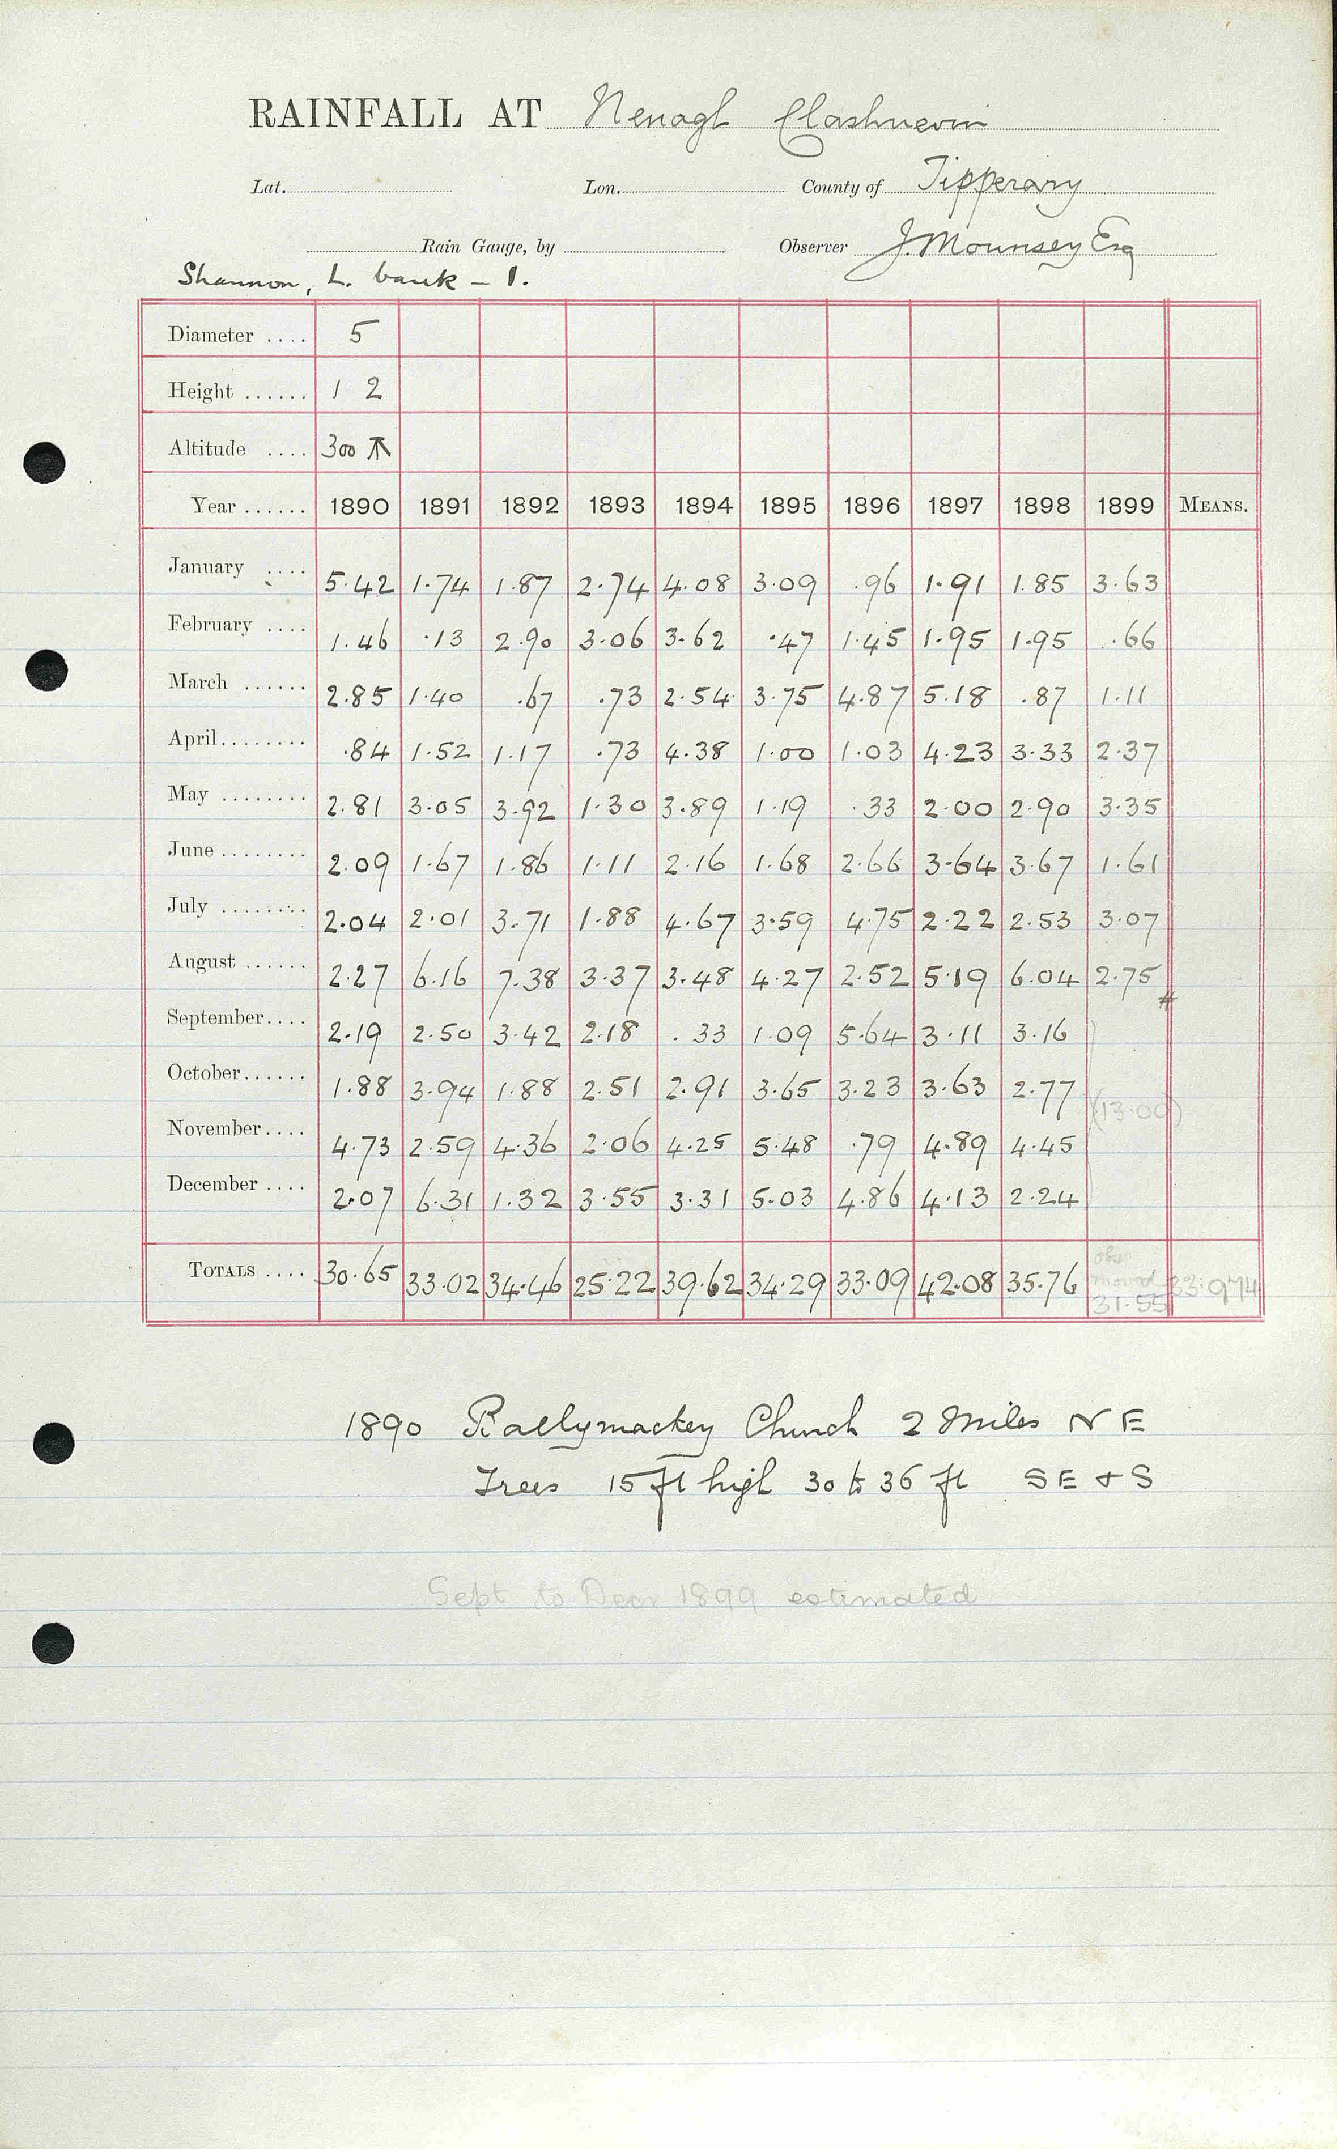 RAINFALL AT Nenagh Clashnevin
Lat. Lon. County of Tipperary
Rain Gauge, by Observer J. Mounsey Esq
Shannon, L. bank - 1.
Diameter .... 5
Height ...... 1 2
Altitude .... 300
Year ...... 1890 1891 1892 1893 1894 1895 1896 1897 1898 1899 MEANS.
January .... 5.42 1.74 1.87 2.74 4.08 3.09 .96 1.91 1.85 3.63
February .... 1.46 .13 2.90 3.06 3.62 .47 1.45 1.95 1.95 .66
March ...... 2.85 1.40 .67 .73 2.54 3.75 4.87 5.18 .87 1.11
April........ .84 1.52 1.17 .73 4.38 1.00 1.03 4.23 3.33 2.37
May ........ 2.81 3.05 3.92 1.30 3.89 1.19 .33 2.00 2.90 3.35
June ........ 2.09 1.67 1.86 1.11 2.16 1.68 2.66 3.64 3.67 1.61
July ........ 2.04 2.01 3.71 1.88 4.67 3.59 4.75 2.22 2.53 3.07
August ...... 2.27 6.16 7.38 3.37 3.48 4.27 2.52 5.19 6.04 2.75 #
September.... 2.19 2.50 3.42 2.18 .33 1.09 5.64 3.11 3.16
October...... 1.88 3.94 1.88 2.51 2.91 3.65 3.23 3.63 2.77
(13.00)
November.... 4.73 2.59 4.36 2.06 4.25 5.48 .79 4.89 4.45
December .... 2.07 6.31 1.32 3.55 3.31 5.03 4.86 4.13 2.24
TOTALS .... 30.65 33.02 34.46 25.22 39.62 34.29 33.09 42.08 35.76 moved 31.55 33.974
1890 Ballymackey Church 2 Miles N E
Trees 15 ft high 30 to 36 ft S E & S
Sept to Decr 1899 estimated